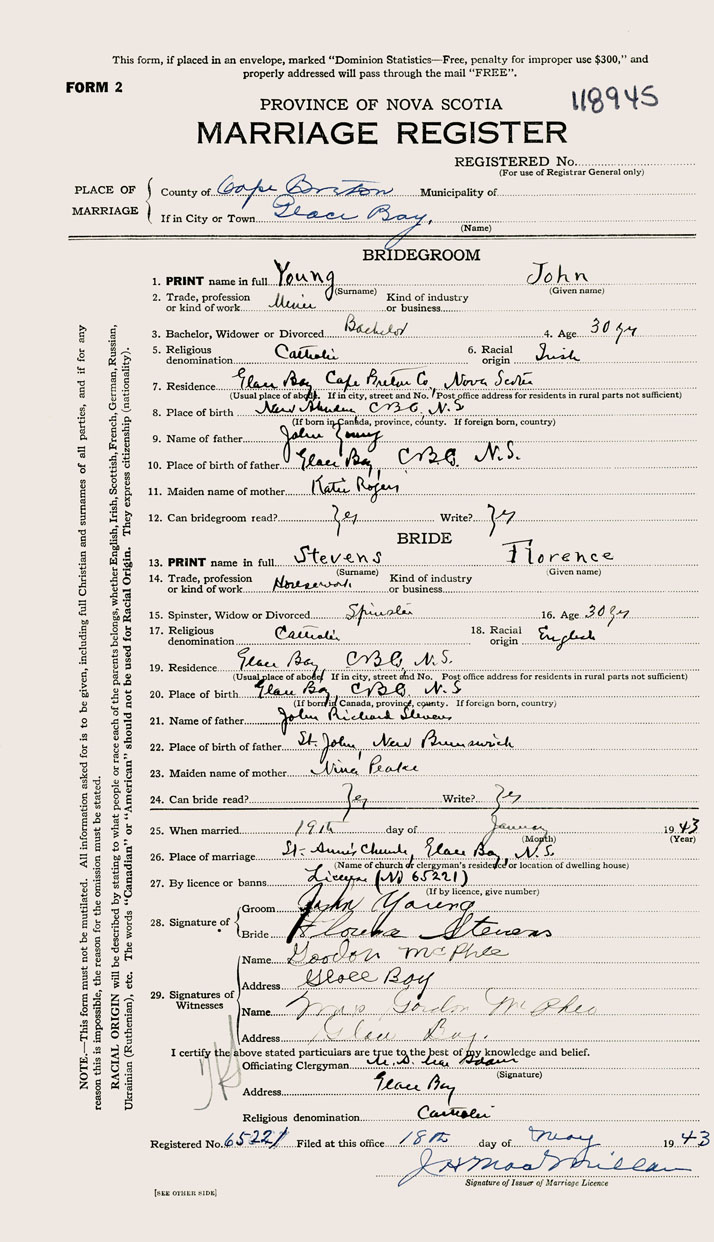 This form, if placed in an envelope, marked "Dominion Statistics—Free, penalty for improper use $300," and
properly addressed will pass through the mail "FREE".
FORM 2
118945
PROVINCE OF NOVA SCOTIA
MARRIAGE REGISTER
REGISTERED No.
(For use of Registrar General only)
PLACE OF MARRIAGE
County of Cape Breton Municipality of
If in City or Town Glace Bay,
(Name)
BRIDEGROOM
1. PRINT name in full Young John
(Surname) (Given name)
2. Trade, profession or kind of work Miner Kind of industry or business
3. Bachelor, Widower or Divorced Bachelor 4. Age 30 yr
5. Religious denomination Catholic 6. Racial origin Irish
7. Residence Glace Bay Cape Breton Co, Nova Scotia
(Usual place of abode. If in city, street and No. Post office address for residents in rural parts not sufficient)
8. Place of birth New Aberdeen CBC, N.S
(If born in Canada, province, county. If foreign born, country)
9. Name of father John Young
10. Place of birth of father Glace Bay, CBC. N.S.
11. Maiden name of mother Katie Rogers
12. Can bridegroom read? Yes Write? Yes
BRIDE
13. PRINT name in full Stevens Florence
(Surname) (Given name)
14. Trade, profession or kind of work Housework Kind of industry or business
15. Spinster, Widow or Divorced Spinster 16. Age 30 yr
17. Religious denomination Catholic 18. Racial origin English
19. Residence Glace Bay CBC, N.S.
(Usual place of abode. If in city, street and No. Post office address for residents in rural parts not sufficient)
20. Place of birth Glace Bay, CBC, N.S
(If born in Canada, province, county. If foreign born, country)
21. Name of father John Richard Stevens
22. Place of birth of father St. John, New Brunswick
23. Maiden name of mother Nina Peake
24. Can bride read? Yes Write? Yes
25. When married 19th day of January 1943
(Month) (Year)
26. Place of marriage St. Anne's Church, Glace Bay, N.S.
(Name of church or clergyman's residence or location of dwelling house)
27. By licence or banns License (No 65221)
(If by licence, give number)
28. Signature of
Groom John Young
Bride Florence Stevens
29. Signatures of Witnesses
Name Gordon McPhee
Address Glace Bay
Name Mrs Gordon McPhee
Address Glace Bay.
I certify the above stated particulars are true to the best of my knowledge and belief.
Officiating Clergyman
(Signature)
Address Glace Bay
Religious denomination Catholic
Registered No. 65221 Filed at this office 18th day of May 1943
J H MacMillan
Signature of Issuer of Marriage Licence
[SEE OTHER SIDE]
NOTE.—This form must not be mutilated. All information asked for is to be given, including full Christian and surnames of all parties, and if for any
reason this is impossible, the reason for the omission must be stated.
RACIAL ORIGIN will be described by stating to what people or race each of the parents belongs, whether English, Irish, Scottish, French, German, Russian,
Ukrainian (Ruthenian), etc. The words "Canadian" or "American" should not be used for Racial Origin. They express citizenship (nationality).